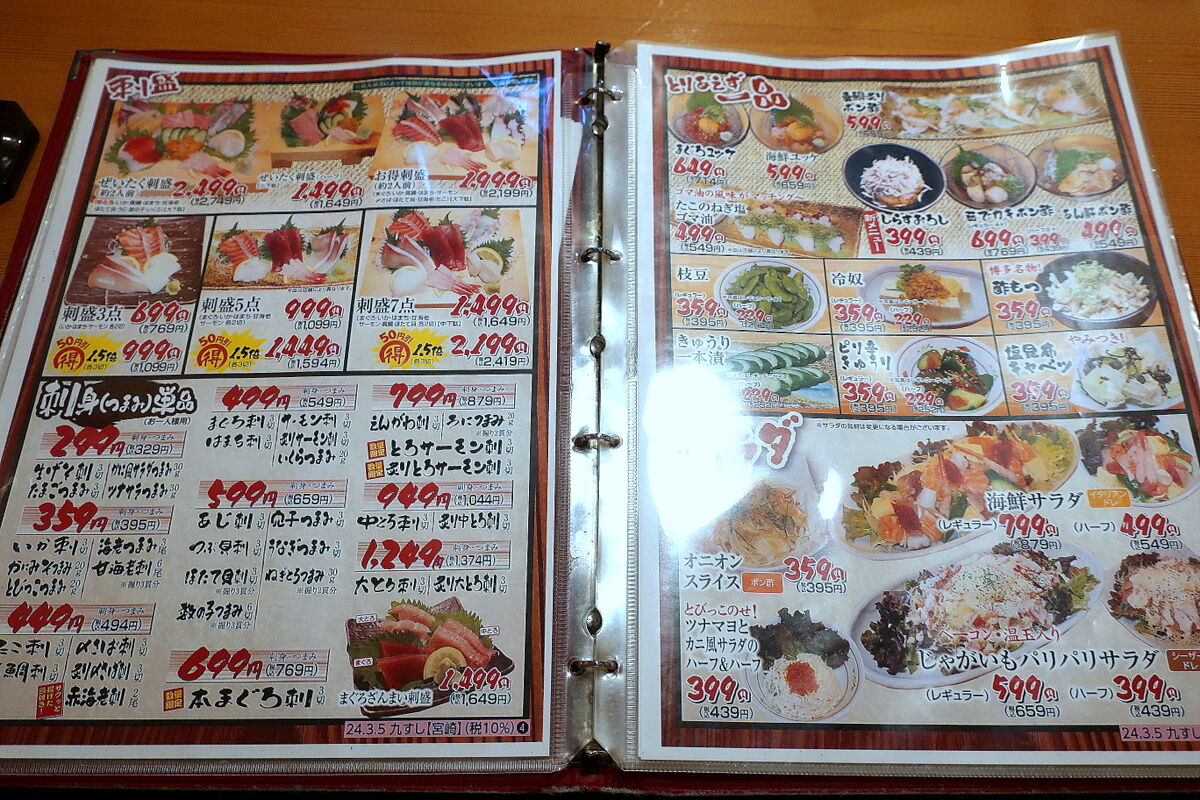 刺り盛
ぜいたく刺盛
(約2人前)
2,499円
(税込2,749円)
ぜいたく刺盛(ハーフ)
1,499円
(税込1,649円)
お得刺盛
(約2人前)
1,999円
(税込2,199円)
刺盛3点 699円
(税込769円)
50円引 得 1.5倍 (各3切) 999円
(税込1,099円)
刺盛5点 999円
(税込1,099円)
50円引 得 1.5倍 (各3切) 1,449円
(税込1,594円)
刺盛7点 1,499円
(税込1,649円)
50円引 得 1.5倍 (各3切) 2,199円
(税込2,419円)
刺身(つまみ)単品
(お一人様用)
299円 刺身・つまみ
(税込329円)
生げそ刺
たまごつまみ
かに風サラダつまみ 30g
ツナサラダつまみ 30g
359円 刺身・つまみ
(税込395円)
いか刺 3切
かにみそつまみ 20g
とびっこつまみ 20g
海老つまみ
甘海老刺
※握り3貫分
449円 刺身・つまみ
(税込494円)
たこ刺
真鯛刺
〆さば刺 3切
炙〆さば刺 3切
赤海老刺 2尾
499円 刺身・つまみ
(税込549円)
まぐろ刺 3切
はまち刺 3切
サーモン刺 3切
炙りサーモン刺
いくらつまみ 20g
599円 刺身・つまみ
(税込659円)
あじ刺 3切
つぶ貝刺 3切
ほたて貝刺 3切
※握り3貫分
数の子つまみ
※握り3貫分
穴子つまみ
うなぎつまみ 3切
ねぎとろつまみ 30g
※握り2貫分
699円 刺身・つまみ
(税込769円)
数量限定 本まぐろ刺 3切
799円 刺身・つまみ
(税込879円)
えんがわ刺 3切
うにつまみ 20g
※握り2貫分
数量限定 とろサーモン刺 3切
数量限定 炙りとろサーモン刺 3切
949円 刺身・つまみ
(税込1,044円)
中とろ刺 3切 炙り中とろ刺 3切
1,249円 刺身・つまみ
(税込1,374円)
大とろ刺 3切 炙り大とろ刺 3切
大とろ
中とろ
まぐろ
まぐろざんまい刺盛 1,499円
(税込1,649円)
24.3.5 九すし【宮崎】(税10%) 4
とりあえず一品
まぐろユッケ
649円
(税込714円)
海鮮ユッケ
599円
(税込659円)
ポン酢
599円
ゴマ油の風味がマッチング〜
たこのねぎ塩
ゴマ油
499円
(税込549円)
新メニュー
しらすおろし
399円
(税込439円)
茹でカキポン酢
699円
(税込769円)
399円
あん肝ポン酢
499円
(税込549円)
枝豆
(レギュラー)
359円
(税込395円)
(ハーフ)
229円
(税込252円)
冷奴
(レギュラー)
359円
(税込395円)
(ハーフ)
229円
(税込252円)
博多名物!
酢もつ
359円
(税込395円)
きゅうり
一本漬
359円
(税込395円)
(ハーフ)
229円
(税込252円)
ピリ辛
きゅうり
(レギュラー)
359円
(税込395円)
(ハーフ)
229円
(税込252円)
やみつき!
塩昆布
キャベツ
359円
(税込395円)
ダ
※サラダの具材は変更になる場合がございます。
海鮮サラダ
イタリアンドレ
(レギュラー) 799円
(税込879円)
(ハーフ) 499円
(税込549円)
オニオン
スライス
ポン酢
359円
(税込395円)
とびっこのせ!
ツナマヨと
カニ風サラダの
ハーフ&ハーフ
399円
(税込439円)
ベーコン・温玉入り
じゃがいもパリパリサラダ
シーザードレ
(レギュラー) 599円
(税込659円)
(ハーフ) 399円
(税込439円)
24.3.5 九すし